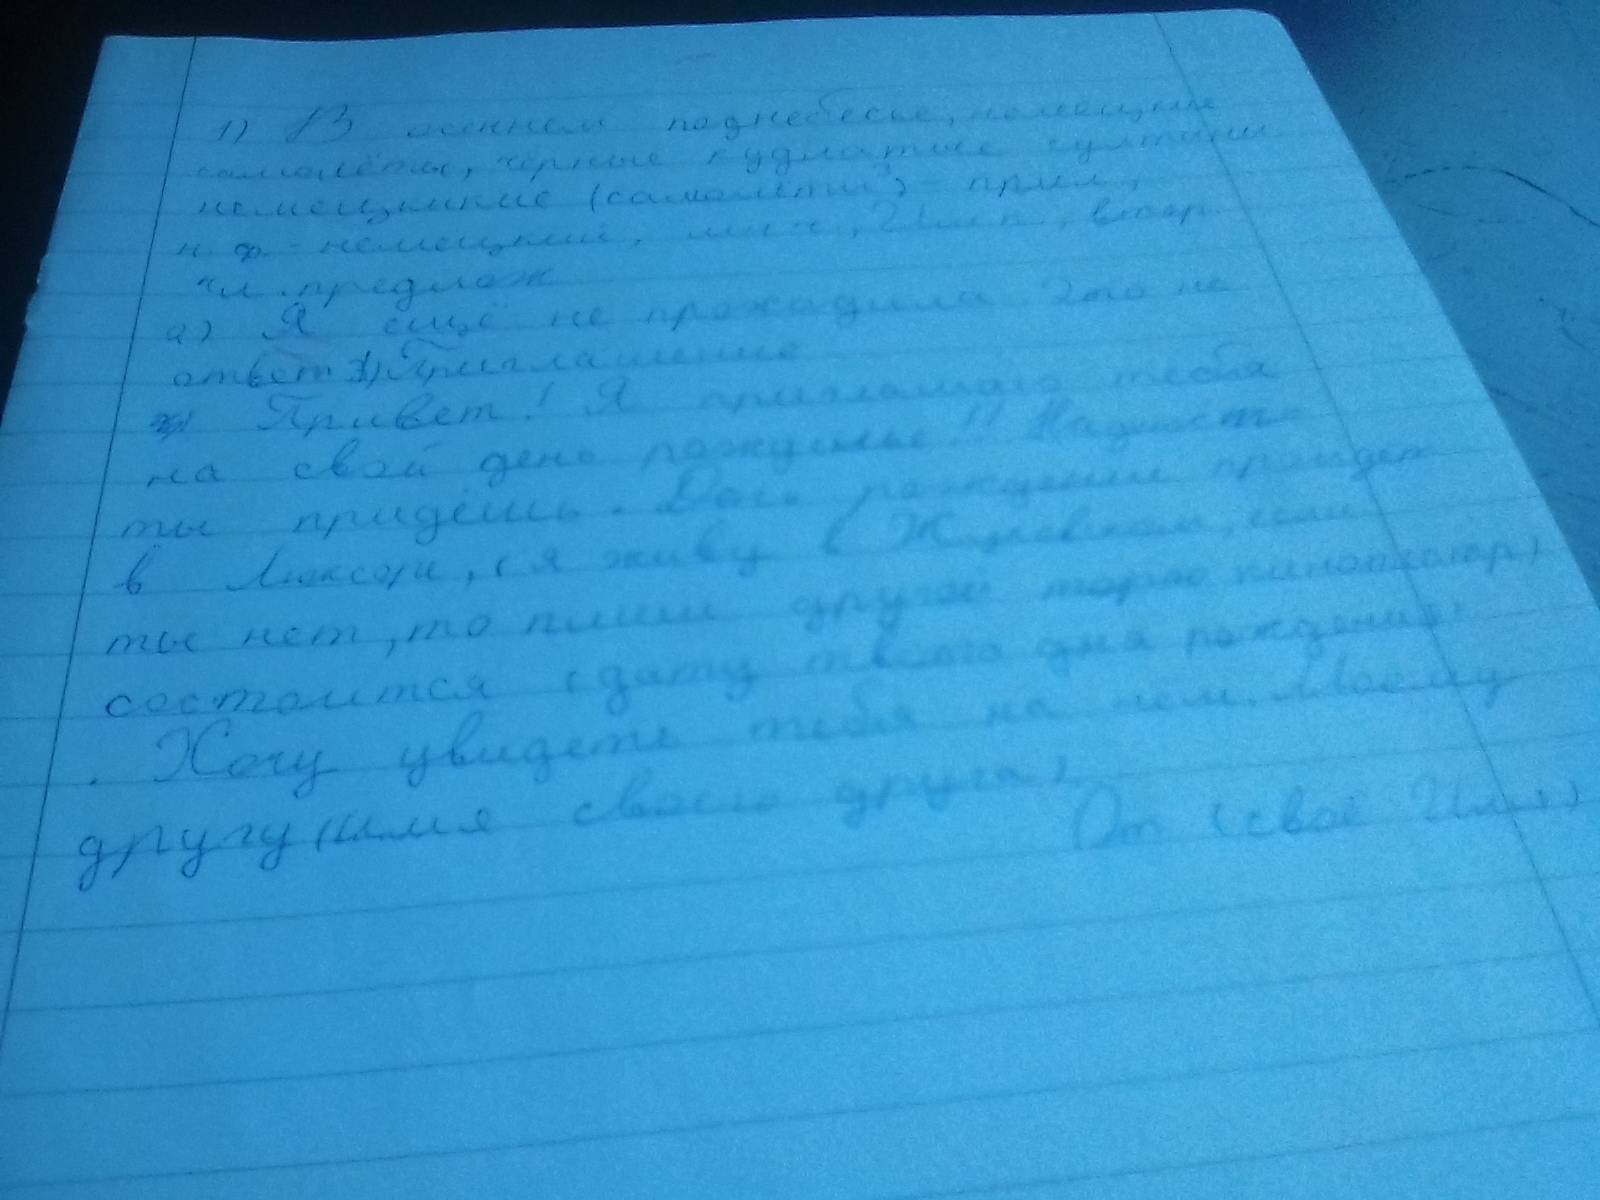 1) В осеннем поднебесье, немецкие
самолёты, чёрные кудлатые султаны
немецкие (самолёты) - прил,
н. ф. - немецкий, мн.ч, И.п., втор.
чл. предлож
2) Я ещё не проходила. Это не
ответ 3) Приглашение
Привет! Я приглашаю тебя
на свой день рожденье!! Надеюсь
ты придёшь. День рождения пройдёт
в Люксоре, (я живу в, если
ты нет, то пиши другой кинотеатр)
состоится (дату твоего дня рождения)
. Хочу увидеть тебя на нем. Моему
другу (имя своего друга)
От (своё Имя)